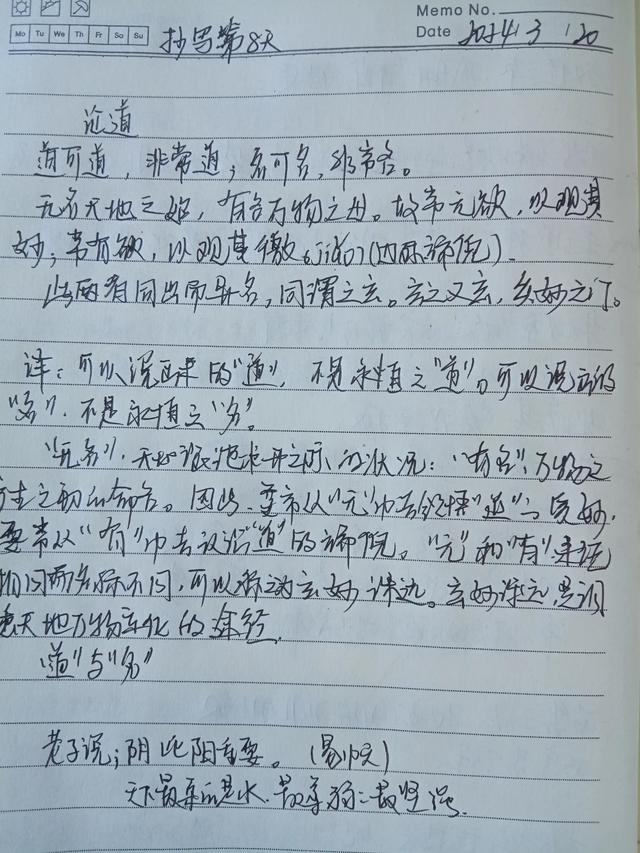 Memo No.
Mo Tu We Th Fr Sa Su
Date 2024 3 20
抄写第8天
论道
道可道，非常道；名可名，非常名。
无名天地之始，有名万物之母。故常无欲，以观其
妙；常有欲，以观其徼(jiào)(边际端倪)。
此两者同出而异名，同谓之玄。玄之又玄，众妙之门。
译：可以说出来的"道"，不是永恒之"道"。可以说出的
"名"，不是永恒之"名"。
"无名"，天地混沌未开之际的状况："有名"，万物之
产生之初的命名。因此，要常从"无"中去领悟"道"之奥妙，
要常从"有"中去认识"道"的端倪。"无"和"有"来源
相同而名称不同，可以称之为玄妙深远。玄妙深远，是洞
悉天地万物变化的途径
"道"与"名"
老子说；阴比阳重要。
天下最柔的是水，最柔弱=最坚强